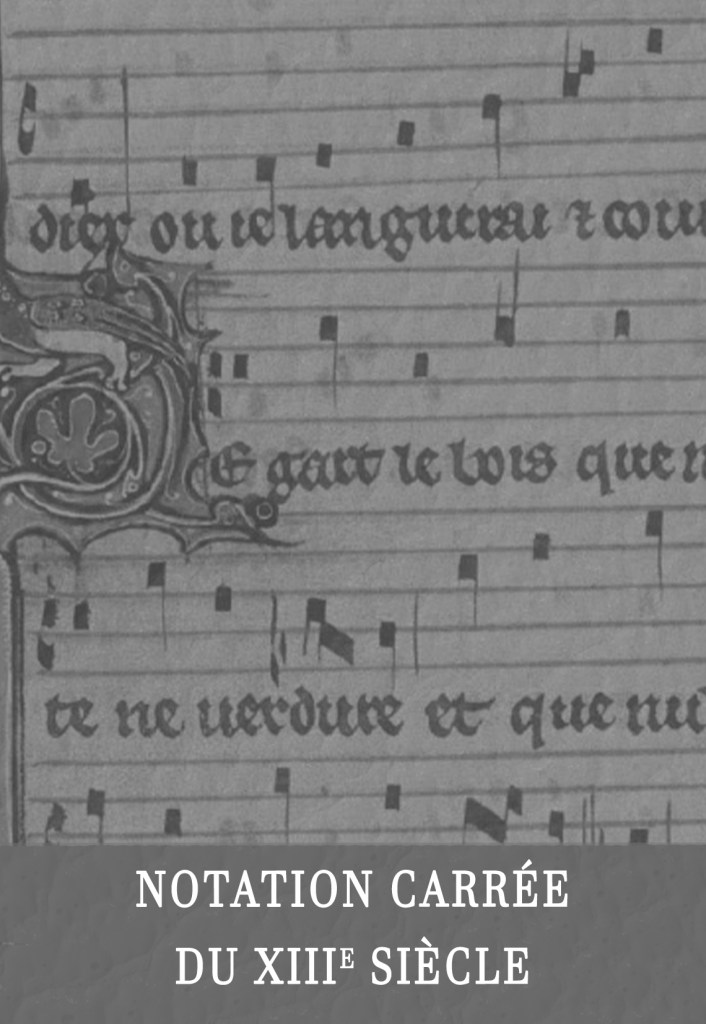 dier ou ie languirai ⁊ cou
E gart le bois que n
te ne uerdure et que nu
NOTATION CARRÉE
DU XIIIᴱ SIÈCLE